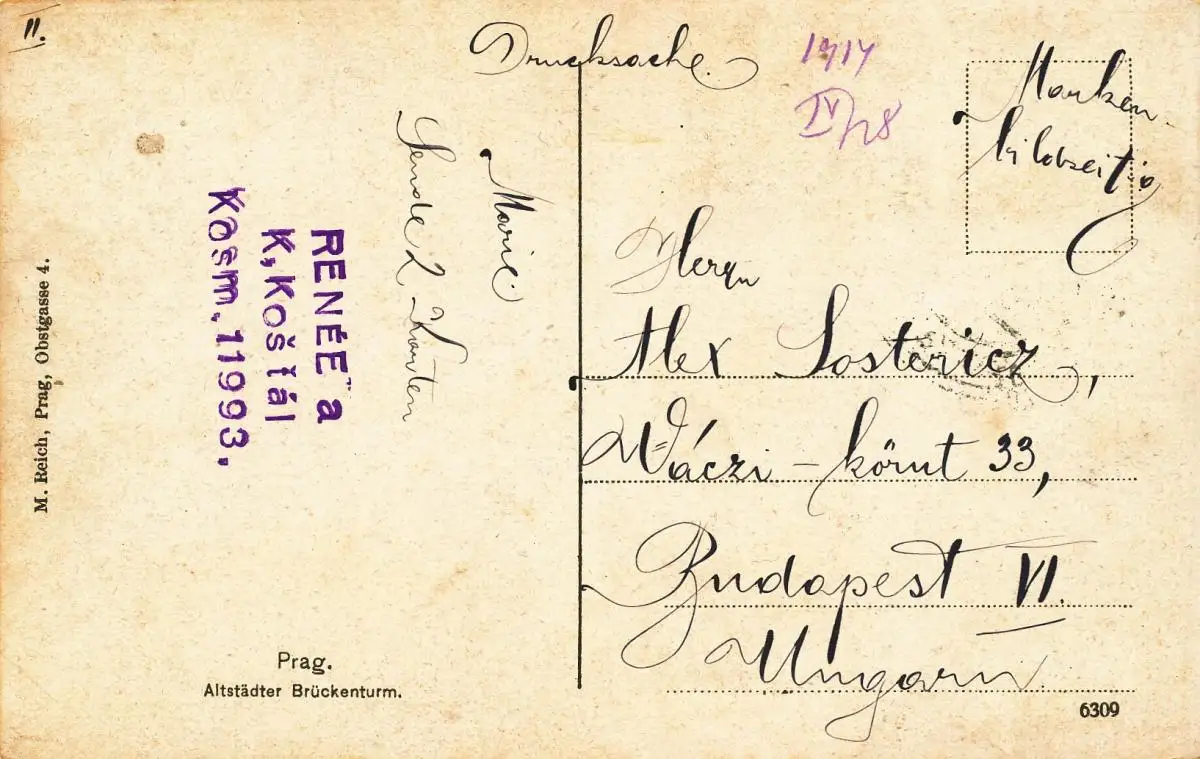 II.
Drucksache.
1914
IV/28
Marken-
bildseitig
Marie
Sende 2 Karten
RENÉE a
K, Koštál
Kosm. 11993,
Herrn
Alex Sostericz,
Váczi - körut 33,
Budapest VI.
Ungarn
M. Reich, Prag, Obstgasse 4.
Prag.
Altstädter Brückenturm.
6309